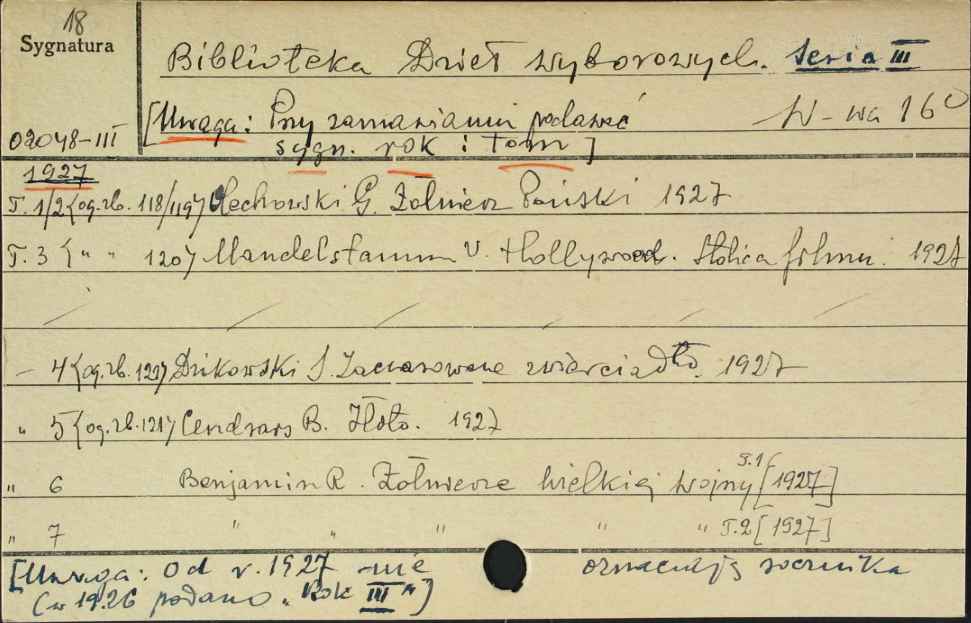 18
Sygnatura
Biblioteka Dzieł wyborowych. Seria III
02048-III
[Uwaga: Przy zamawianiu podawać W-wa 16°
sygn. rok i tom]
1927
T. 1/2 {og. zb. 118/119} G. Żołnierz Pański 1927
T. 3 { " " 120} Mandelstamm V. Hollywood. Stolica filmu. 1927
- 4 {og. zb. 121} S. Zaczarowane zwierciadło. 1927
" 5 {og. zb. 121} Cendrars B. Złoto. 1927
" 6 Benjamin R. Żołnierze wielkiej wojny T.1 [1927]
" 7 " " " " " T.2 [1927]
[Uwaga: Od r. 1927 nie oznaczają rocznika
(w 1926 podano „Rok III")]